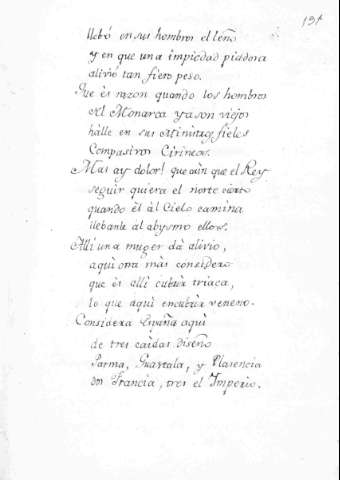 131
llebó en sus hombros el leño
y en que una impiedad piadora
alivió tan fiero peso.
Que és razon quando los hombros
del Monarca ya son viejos
hálle en sus Ministros fieles
Compasivos Cirineos.
Mas ay dolor! que aùn que el Rey
seguir quiera el norte cierto
quando èl àl Cielo camina
llebanle àl abysmo ellos.
Alli una muger dà alivio,
aquì otra màs considero
que es allì cubrir triaca,
lo que aquì encubrir veneno.
Considera España aquì
de tres caìdas diseño
Parma, Guastala, y Plasencia
dos Francia, tres el Imperio.